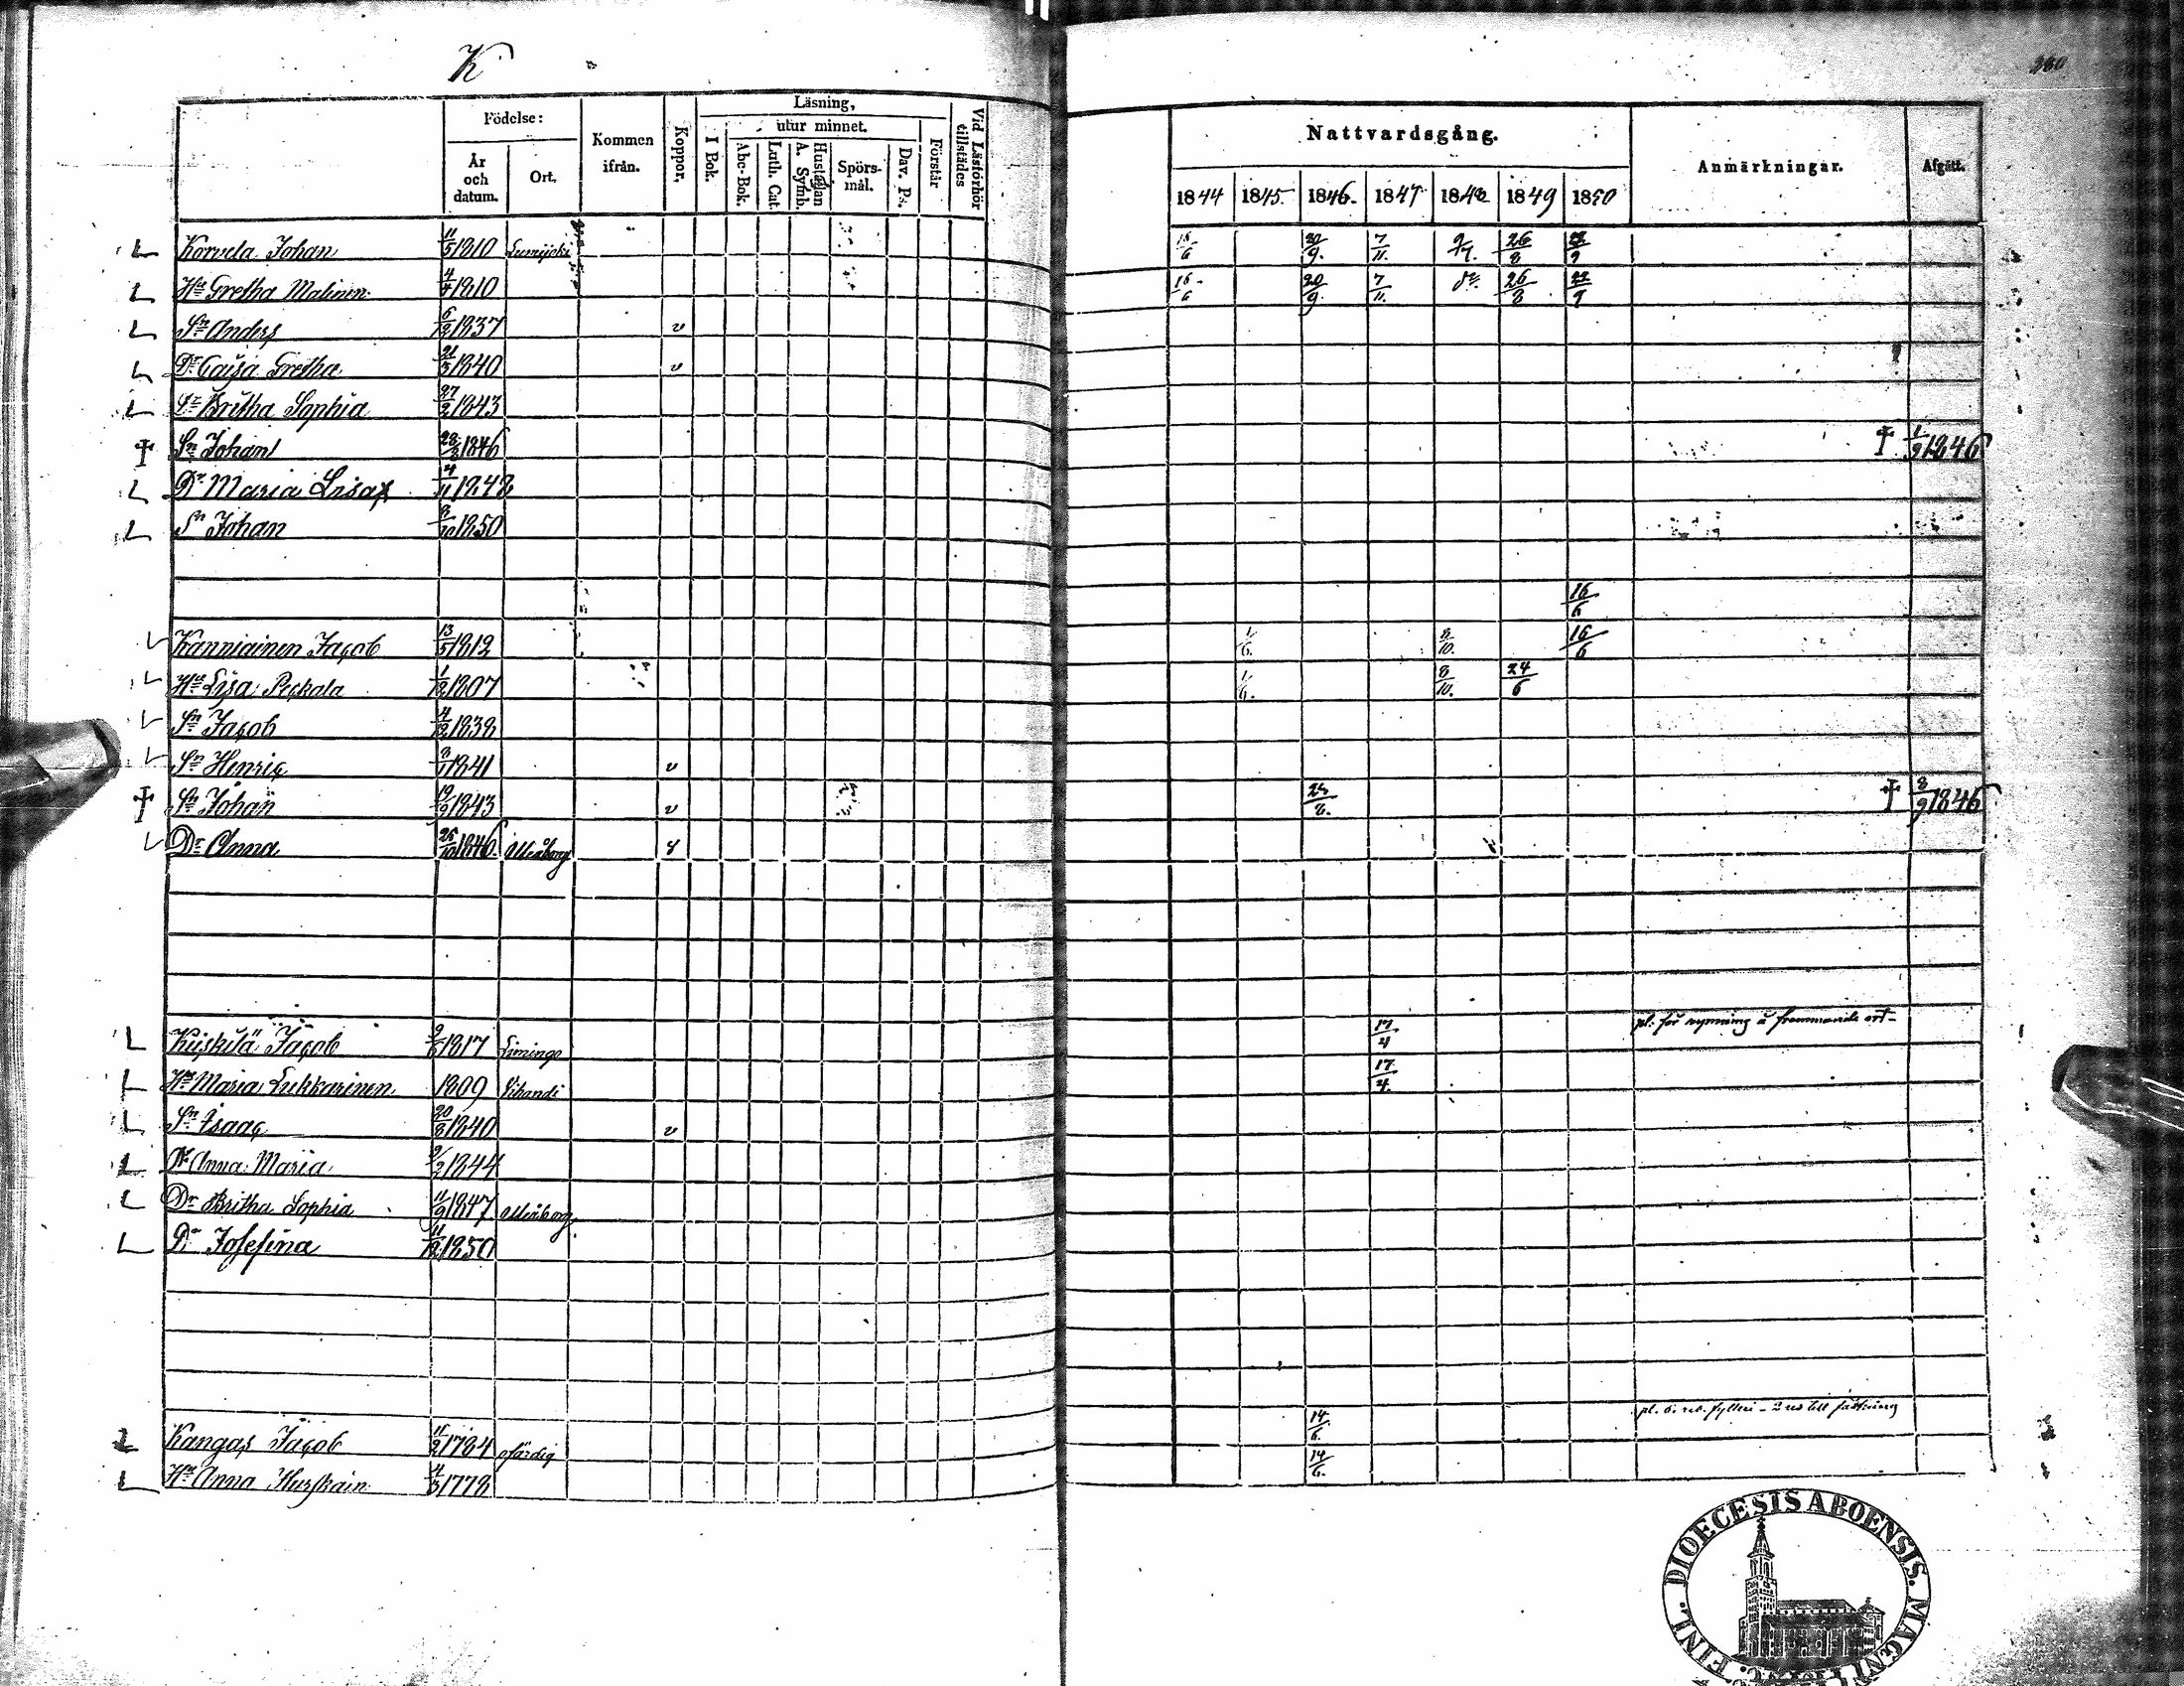 K
280
Födelse:
År och datum.
Ort.
Kommen ifrån.
Koppor.
Läsning,
I Bok.
utur minnet.
Abc-Bok.
Luth. Cat.
Hustaflan A. Symb.
Spörsmål.
Dav. Ps.
Förstår
Vid Läsförhör tillstädes
Nattvardsgång.
1844 1845. 1846. 1847 1848 1849 1850
Anmärkningar.
Afgått.
L Korvela Johan 11/5 1810 Lumijoki 16/6 20/9. 7/11. 9/7. 26/8 22/9
L Hu Gretha Malinen 4/4 1810 16/6 20/9. 7/11. do. 26/8 22/9
L Sn Anders 6/12 1837 v
L Dr Caisa Gretha 21/5 1840 v
L Dr Britha Sophia 27/2 1843
† Sn Johan 28/3 1846 † 1/9 1846
L Dr Maria Lisa 4/11 1848
L Sn Johan 8/10 1850
16/6
Kanniainen Jacob 13/5 1812 1/6. 8/10. 16/6
Hu Lisa Peckala 1/12 1807 1/6. 8/10. 24/6
Sn Jacob 4/12 1838
Sn Henric 8/1 1841 v
† Sn Johan 19/9 1843 v 25/8. † 8/9 1846
Dr Anna 25/10 1846. Uleåborg
pl. för rymning å frammande ort-
L Kiiskilä Jacob 9/6 1817 Limingo 17/4
L Hu Maria Lukkarinen 1809 Vihandi 17/4.
L Sn Isaac 20/8 1840 v
L Dr Anna Maria 9/2 1844
L Dr Britha Sophia 11/9 1847 Uleåborg
L Dr Josefina 11/12 1850
L Kangas Jacob 11/2 1784 ofärdig 14/6.
L Hu Anna Hurskain 4/3 1778 14/6.
DIOECESIS ABOENSIS.